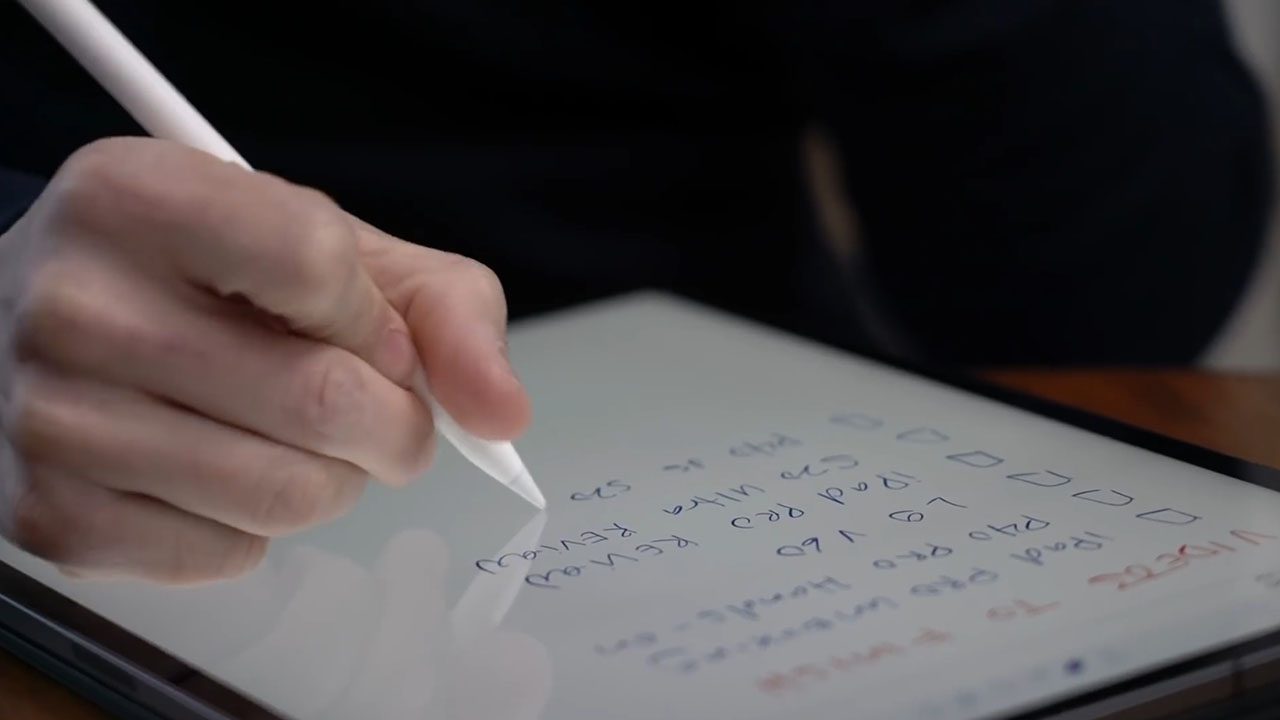 VIDEOS TO FINISH
iPad PRO unboxing
P40 PRO Hands-on
LG V60
iPad PRO REVIEW
S20 Ultra REVIEW
P40 vs S20